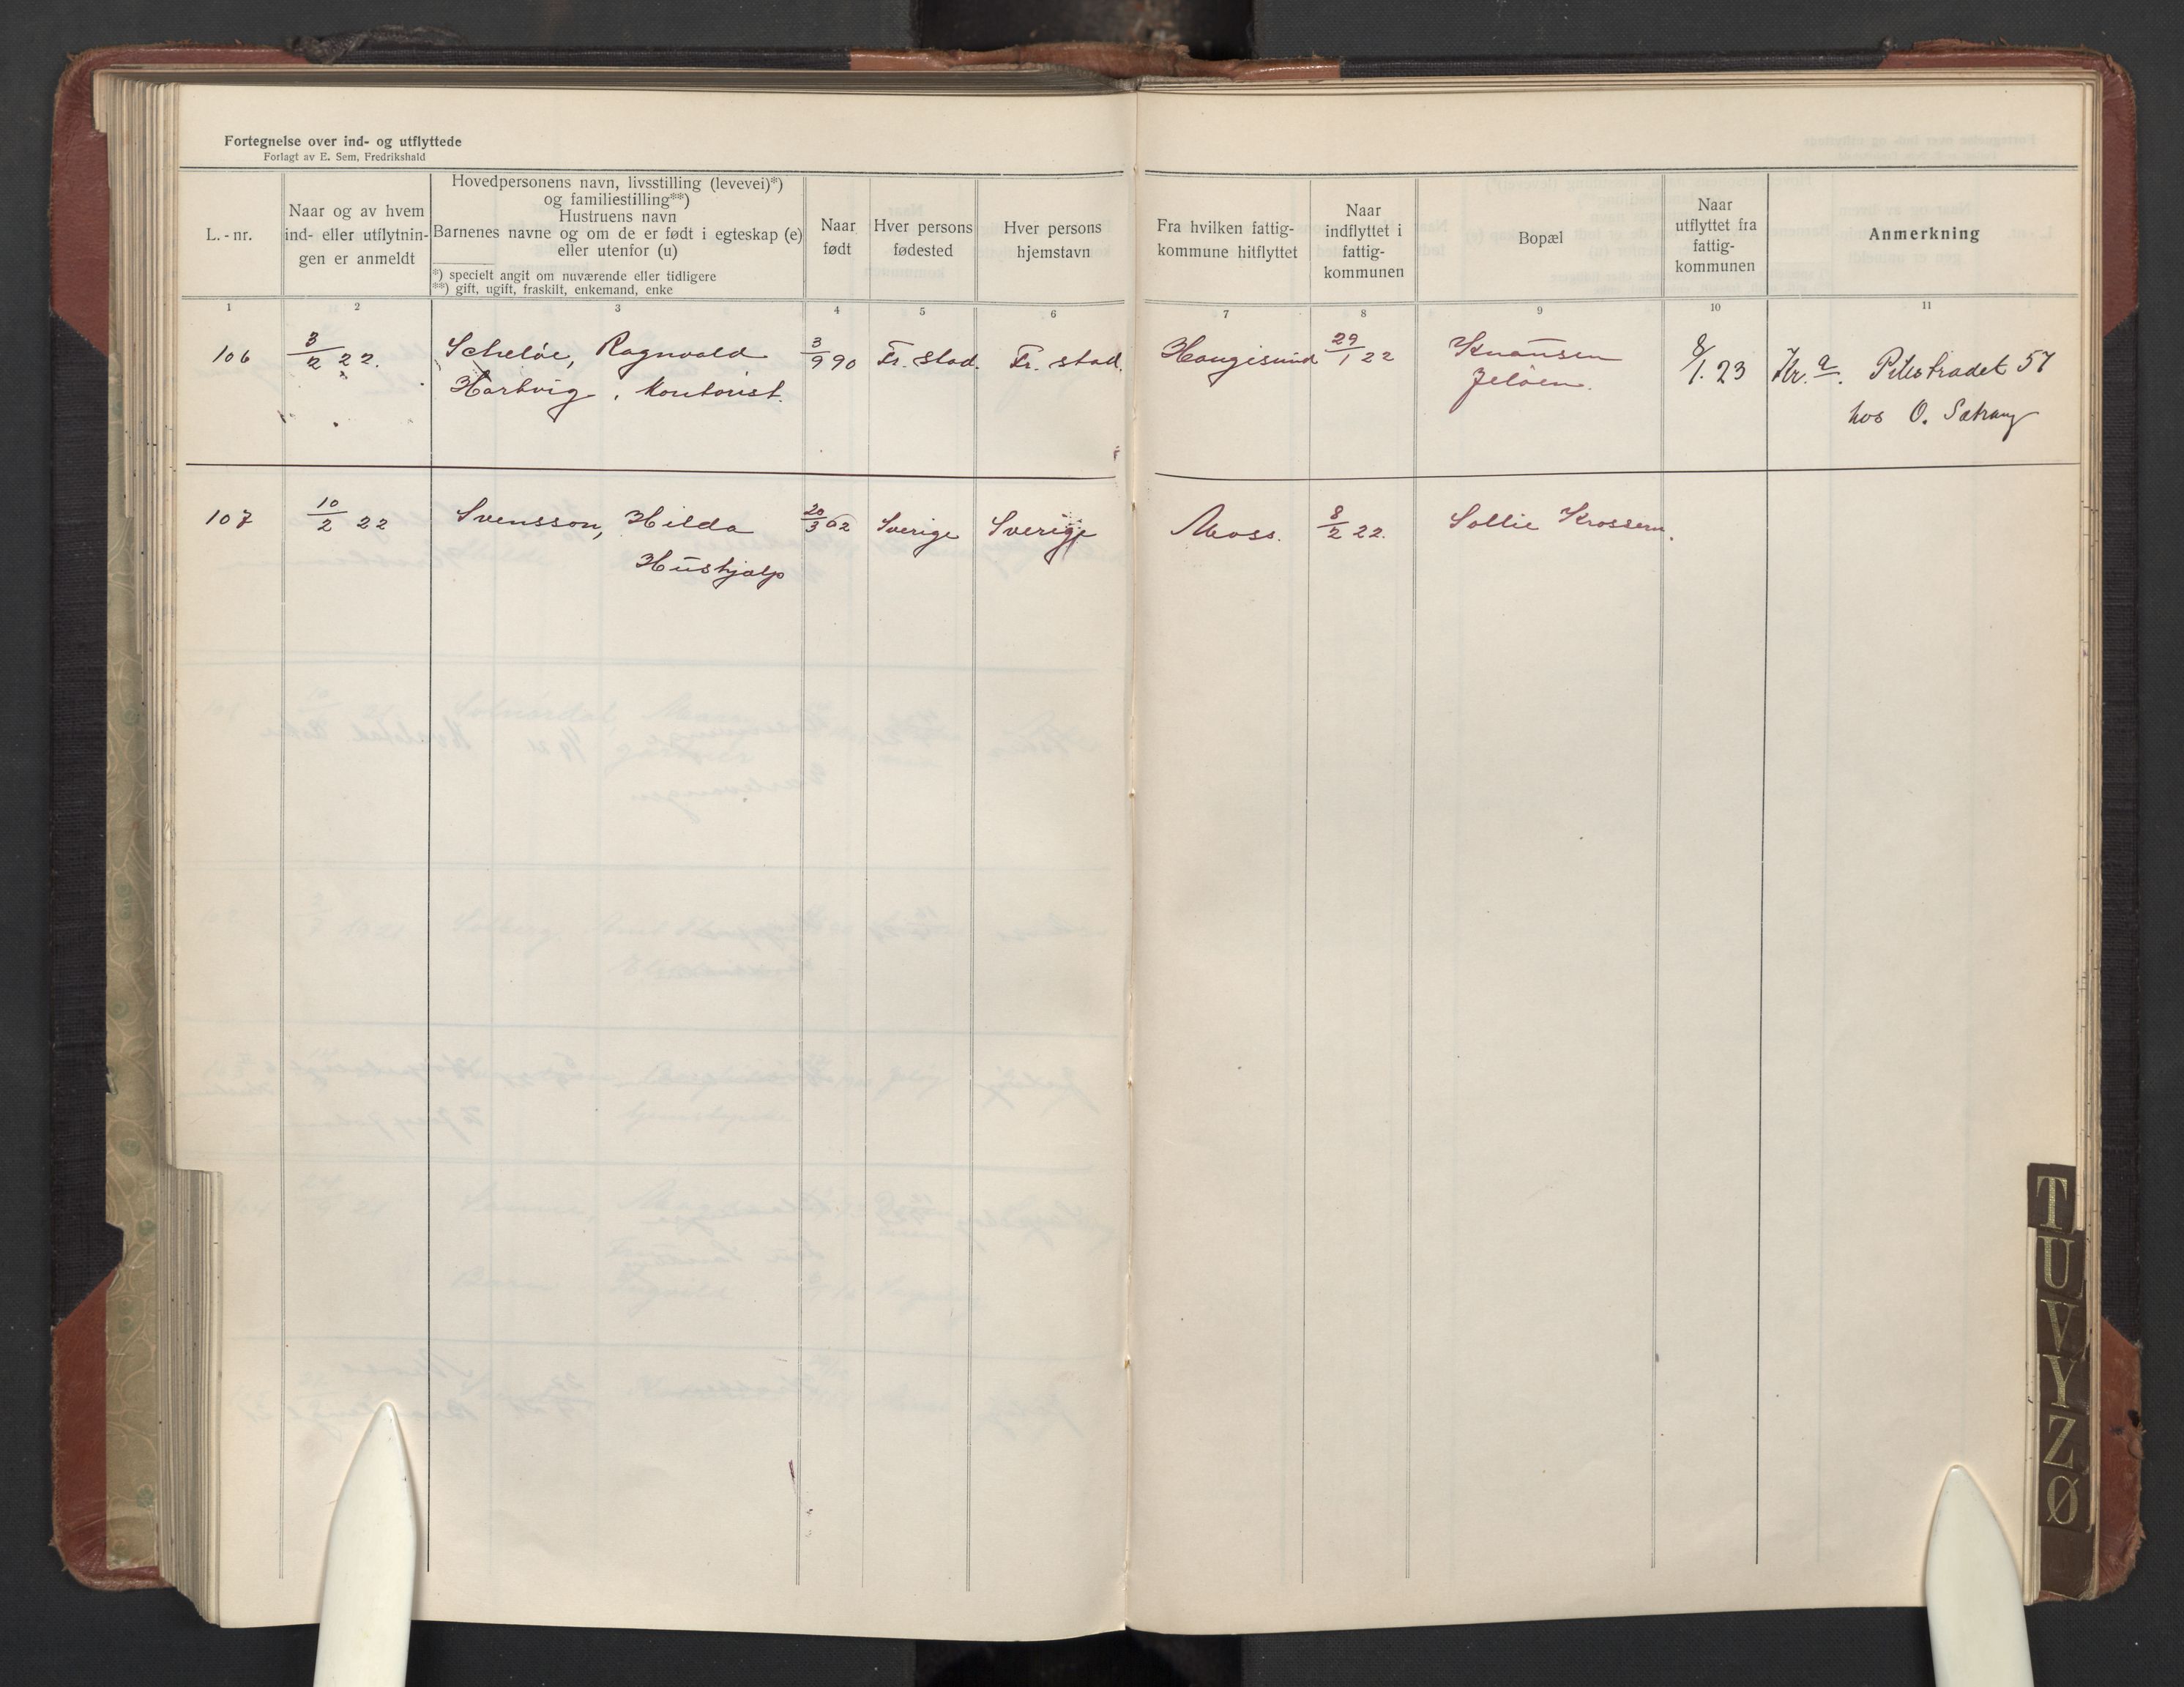 Fortegnelse over ind- og utflyttede
Forlagt av E. Sem, Fredrikshald
L.-nr.
Naar og av hvem
ind- eller utflytnin-
gen er anmeldt
Hovedpersonens navn, livsstilling (levevei)*)
og familiestilling**)
Hustruens navn
Barnenes navne og om de er født i egteskap (e)
eller utenfor (u)
*) specielt angit om nuværende eller tidligere
**) gift, ugift, fraskilt, enkemand, enke
Naar
født
Hver persons
fødested
Hver persons
hjemstavn
Fra hvilken fattig-
kommune hitflyttet
Naar
indflyttet i
fattig-
kommunen
Bopæl
Naar
utflyttet fra
fattig-
kommunen
Anmerkning
1 2 3 4 5 6 7 8 9 10 11
106 3/2 22. Scheløe, Ragnvald 3/9 90 Fr. stad. Fr. stad. Haugesund 29/1 22 Knausen 8/1. 23 Kr.a. Pilestradet 57
Hartvig, Kontorist. Jeløen. hos O.
107 10/2 22 Svensson, Hilda 20/3 02 Sverige Sverige Moss. 8/2 22. Sollie Krossern.
Hushjalp
T
U
V
Y
Z
Ø